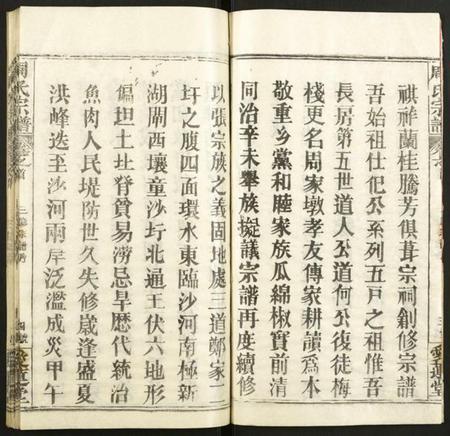 周氏宗譜
卷之首
祺祥蘭桂騰芳俱葺宗祠創修宗譜
吾始祖仕 公系列五戸之祖惟吾
長居第五世道人公道何公復徒梅
棧更名周家墩孝友傳家耕讀為本
敬重乡黨和睦家族瓜綿椒實前清
同治辛未舉族擬議宗譜再度續修
愛蓮堂
以張宗族之義固地處三道鄭家二
圩之腹四面環水東臨沙河南極新
湖閘西壤童沙圩北通王伏六地形
偏坦土址脊貧易澇忌旱歷代統治
魚肉人民堤防世久失修歲逢盛夏
洪峰迭至沙河兩岸泛濫成災甲午
周氏宗譜
卷之首
愛蓮堂